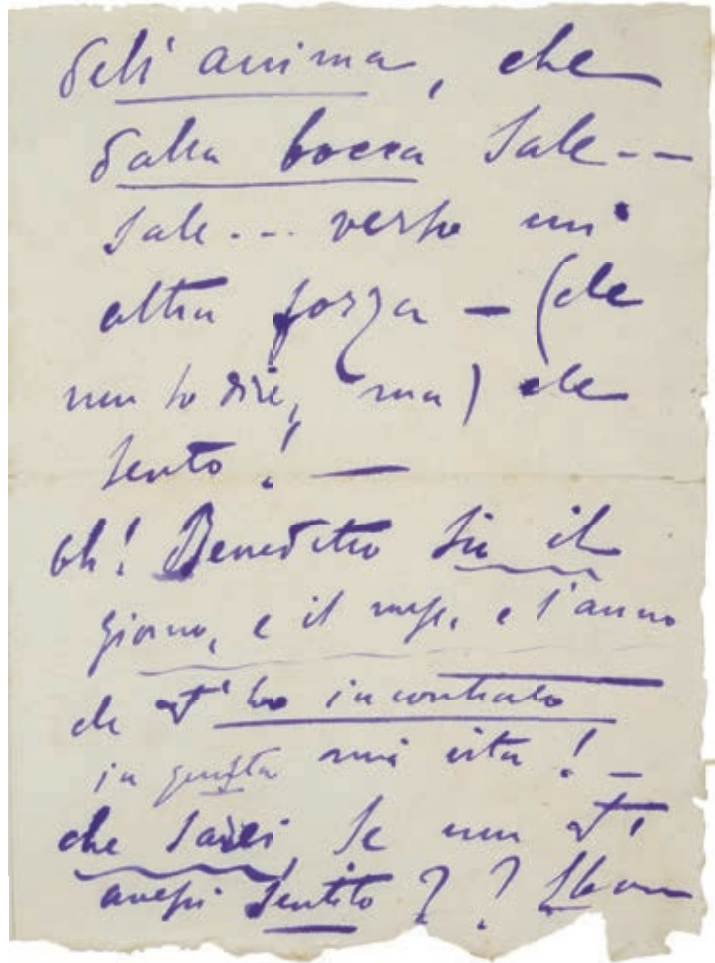 dell'anima, che
dalla bocca sale--
sale... verso un'
altra forza – (che
non so dire, ma) che
sento! —
Oh! Benedetto sia il
giorno, e il mese, e l'anno
che T'ho incontrato
in questa mia vita! –
che sarei, se non T'
avessi sentito ? ?